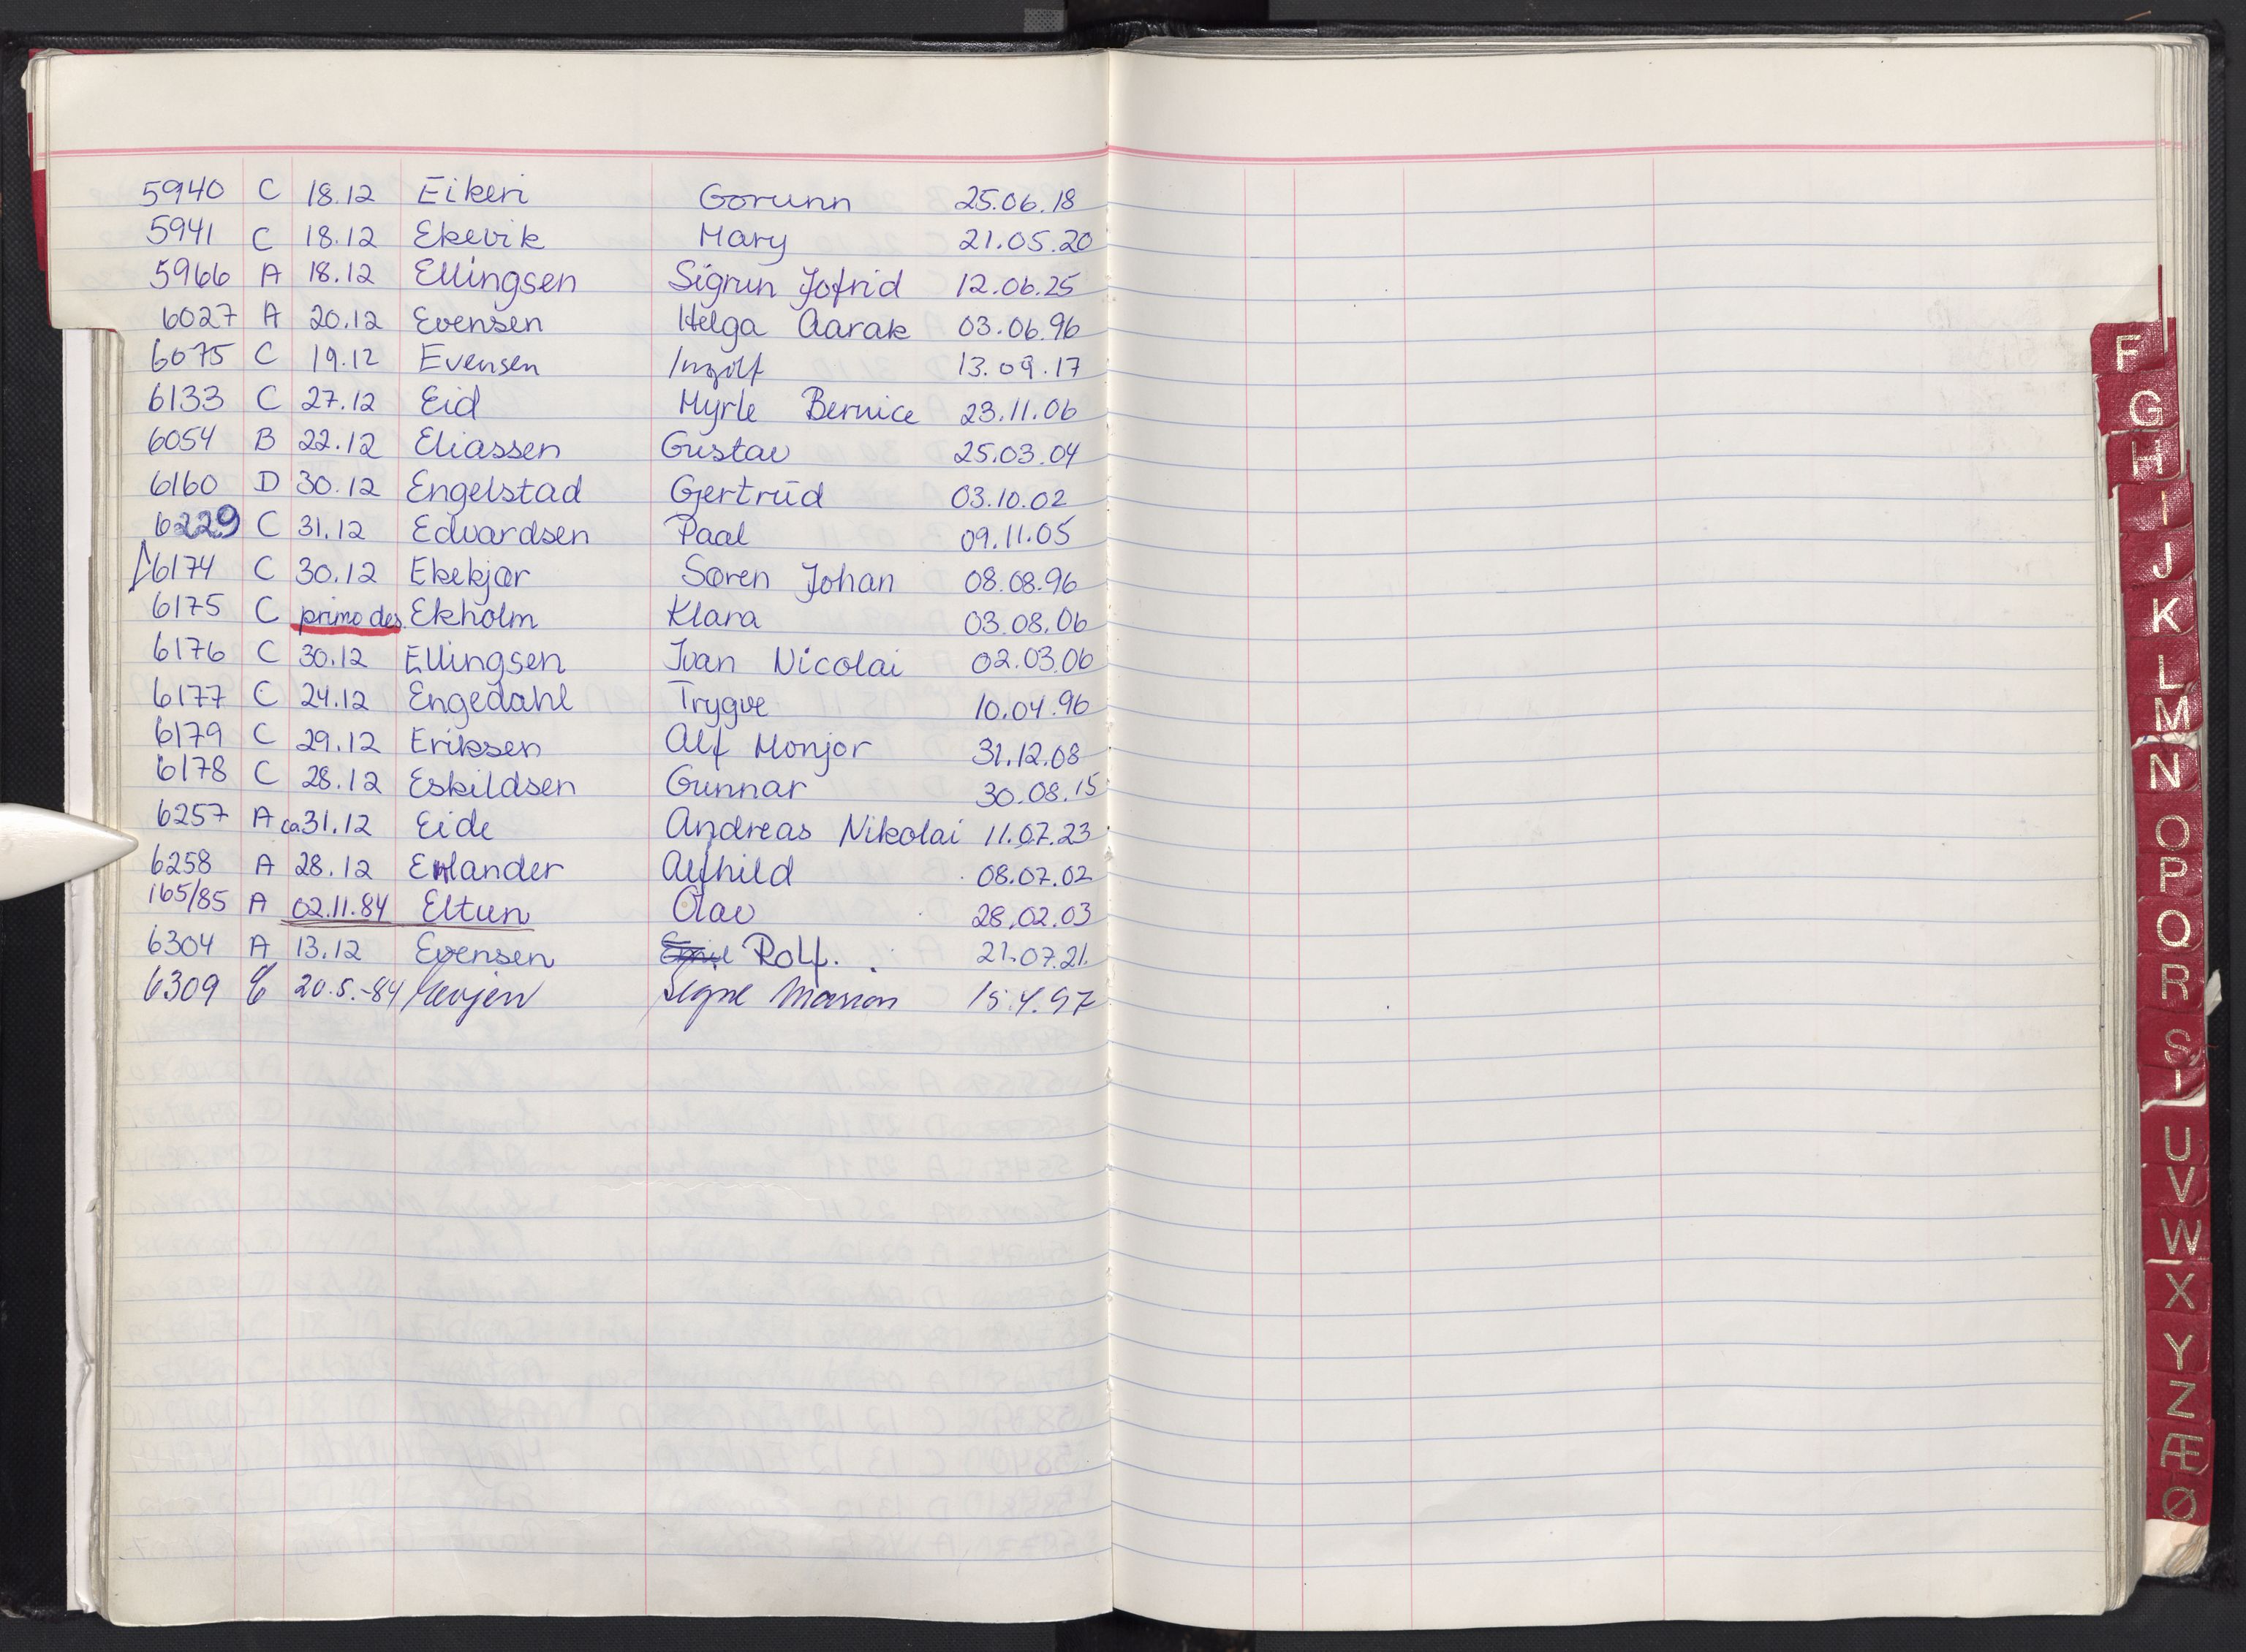 5940 C 18.12 Eikeri Gorunn 25.06.18
5941 C 18.12 Ekevik Mary 21.05.20
5966 A 18.12 Ellingsen Sigrun Jofrid 12.06.25
6027 A 20.12 Evensen Helga Aarak 03.06.96
6075 C 19.12 Evensen Ingolf 13.09.17
6133 C 27.12 Eid Myrle Bernice 23.11.06
6054 B 22.12 Eliassen Gustav 25.03.04
6160 D 30.12 Engelstad Gjertrud 03.10.02
6229 C 31.12 Edvardsen Paal 09.11.05
6174 C 30.12 Ekekjær Søren Johan 08.08.96
6175 C primo des. Ekholm Klara 03.08.06
6176 C 30.12 Ellingsen Ivan Nicolai 02.03.06
6177 C 24.12 Engedahl Trygve 10.04.96
6179 C 29.12 Eriksen Alf Monjor 31.12.08
6178 C 28.12 Eskildsen Gunnar 30.08.15
6257 A ca 31.12 Eide Andreas Nikolai 11.07.23
6258 A 28.12 Erlander Alfhild 08.07.02
165/85 A 02.11.84 Eltun Olav 28.02.03
6304 A 13.12 Evensen Rolf. 21.07.21
6309 C 20.5.-84 Evjen Signe Marion 15.4.97
F
G
H
I
J
K
L
M
N
O
P
Q
R
S
U
V
W
X
Y
Z
Æ
Ø